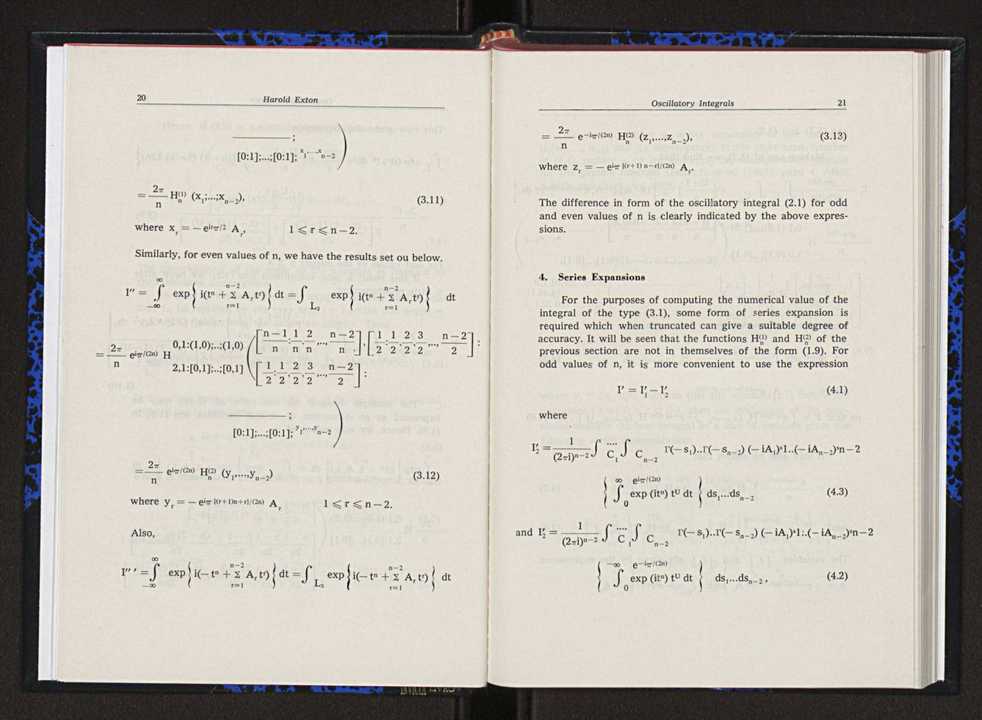 20
Harold Exton
———— ;
[0:1];...;[0:1]; x₁,...,xₙ₋₂ )
= 2π/n Hₙ⁽¹⁾ (x₁;...;xₙ₋₂), (3.11)
where xᵣ = — e^{irπ/2} Aᵣ, 1 ⩽ r ⩽ n — 2.
Similarly, for even values of n, we have the results set ou below.
I'' = ∫_{—∞}^{∞} exp{ i(tⁿ + Σ_{r=1}^{n—2} Aᵣ tʳ) } dt = ∫_{L₂} exp{ i(tⁿ + Σ_{r=1}^{n—2} Aᵣ tʳ) } dt
= 2π/n e^{iπ/(2n)} H 0,1:(1,0);..;(1,0) ( [n—1/n : 1/n, 2/n, ..., n—2/n], [1/2 : 1/2, 2/2, 3/2, ..., n—2/2] :
2,1:[0,1];..;[0,1] [1/2 : 1/2, 2/2, 3/2, n—2/2] :
———— ;
[0:1];...;[0:1]; y₁,...,yₙ₋₂ )
= 2π/n e^{iπ/(2n)} Hₙ⁽²⁾ (y₁,...,yₙ₋₂) (3.12)
where yᵣ = — e^{iπ [(r+1)n+r]/(2n)} Aᵣ 1 ⩽ r ⩽ n — 2.
Also,
I''' = ∫_{—∞}^{∞} exp{ i(— tⁿ + Σ_{r=1}^{n—2} Aᵣ tʳ) } dt = ∫_{L₃} exp{ i(— tⁿ + Σ_{r=1}^{n—2} Aᵣ tʳ) } dt
Oscillatory Integrals
21
= 2π/n e^{—iπ/(2n)} Hₙ⁽²⁾ (z₁,...,zₙ₋₂), (3.13)
where zᵣ = — e^{iπ [(r+1) n—r]/(2n)} Aᵣ.
The difference in form of the oscillatory integral (2.1) for odd
and even values of n is clearly indicated by the above expres-
sions.
4. Series Expansions
For the purposes of computing the numerical value of the
integral of the type (3.1), some form of series expansion is
required which when truncated can give a suitable degree of
accuracy. It will be seen that the functions Hₙ⁽¹⁾ and Hₙ⁽²⁾ of the
previous section are not in themselves of the form (1.9). For
odd values of n, it is more convenient to use the expression
I' = I'₁ — I'₂ (4.1)
where
I'₂ = 1/(2πi)ⁿ⁻² ∫_{C₁} .... ∫_{Cₙ₋₂} Γ(— s₁)..Γ(— sₙ₋₂) (— iA₁)ˢ1..(— iAₙ₋₂)ˢn—2
{ ∫₀^{∞ e^{iπ/(2n)}} exp (itⁿ) tᵁ dt } ds₁...dsₙ₋₂ (4.3)
and I'₂ = 1/(2πi)ⁿ⁻² ∫_{C₁} .... ∫_{Cₙ₋₂} Γ(— s₁)..Γ(— sₙ₋₂) (— iA₁)ˢ1..(— iAₙ₋₂)ˢn—2
{ ∫₀^{—∞ e^{—iπ/(2n)}} exp (itⁿ) tᵁ dt } ds₁...dsₙ₋₂ , (4.2)